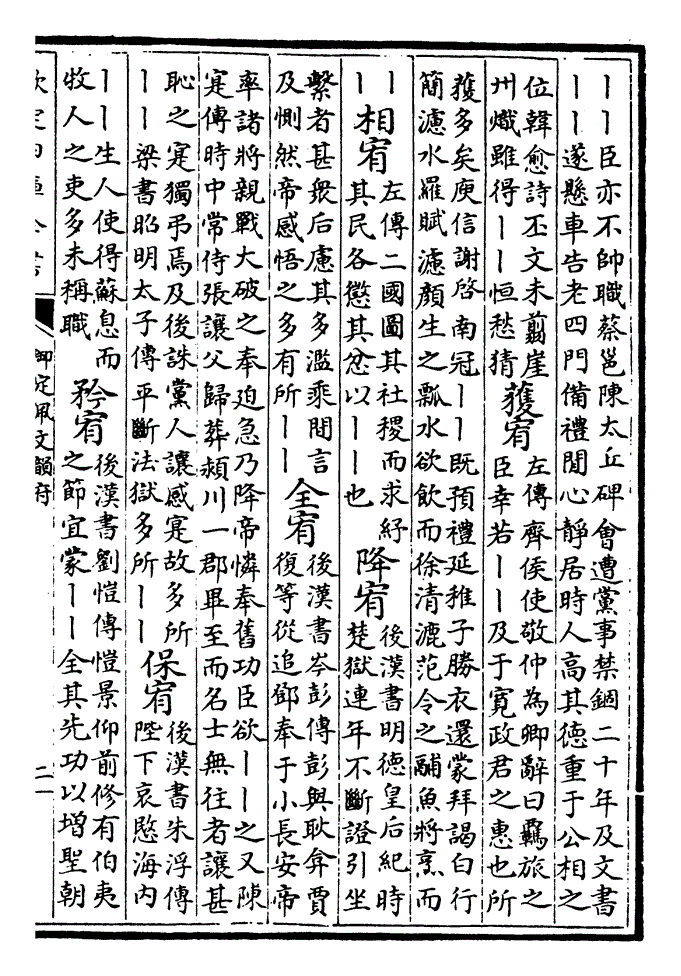 丨丨臣亦不帥職蔡邕陳太丘碑會遭黨事禁錮二十年及文書
丨丨遂懸車告老四門備禮閒心靜居時人高其德重于公相之
位韓愈詩丕文未翦崖
州熾雖得丨丨恒愁猜
獲宥
左傳齊侯使敬仲為卿辭曰羈旅之
臣幸若丨丨及于寛政君之惠也所
獲多矣庾信謝啓南冠丨丨既預禮延稚子勝衣還蒙拜謁白行
簡濾水羅賦濾顏生之瓢水欲飲而徐清漉范令之鬴魚將烹而
丨
丨
相宥
左傳二國圖其社稷而求紓
其民各懲其忿以丨丨也
降宥
後漢書明德皇后紀時
楚獄連年不斷證引坐
繫者甚衆后慮其多濫乘間言
及惻然帝感悟之多有所丨丨
全宥
後漢書岑彭傳彭與耿弇賈
復等從追鄧奉于小長安帝
率諸將親戰大破之奉迫急乃降帝憐奉舊功臣欲丨丨之又陳
寔傳時中常侍張讓父歸葬潁川一郡畢至而名士無往者讓甚
恥之寔獨弔焉及後誅黨人讓感寔故多所
丨丨梁書昭明太子傳平斷法獄多所丨丨
保宥
後漢書朱浮傳
陛下哀愍海内
丨丨生人使得蘇息而
牧人之吏多未稱職
矜宥
後漢書劉愷傳愷景仰前修有伯夷
之節宜蒙丨丨全其先功以增聖朝
欽定四庫全書
御定佩文韻府